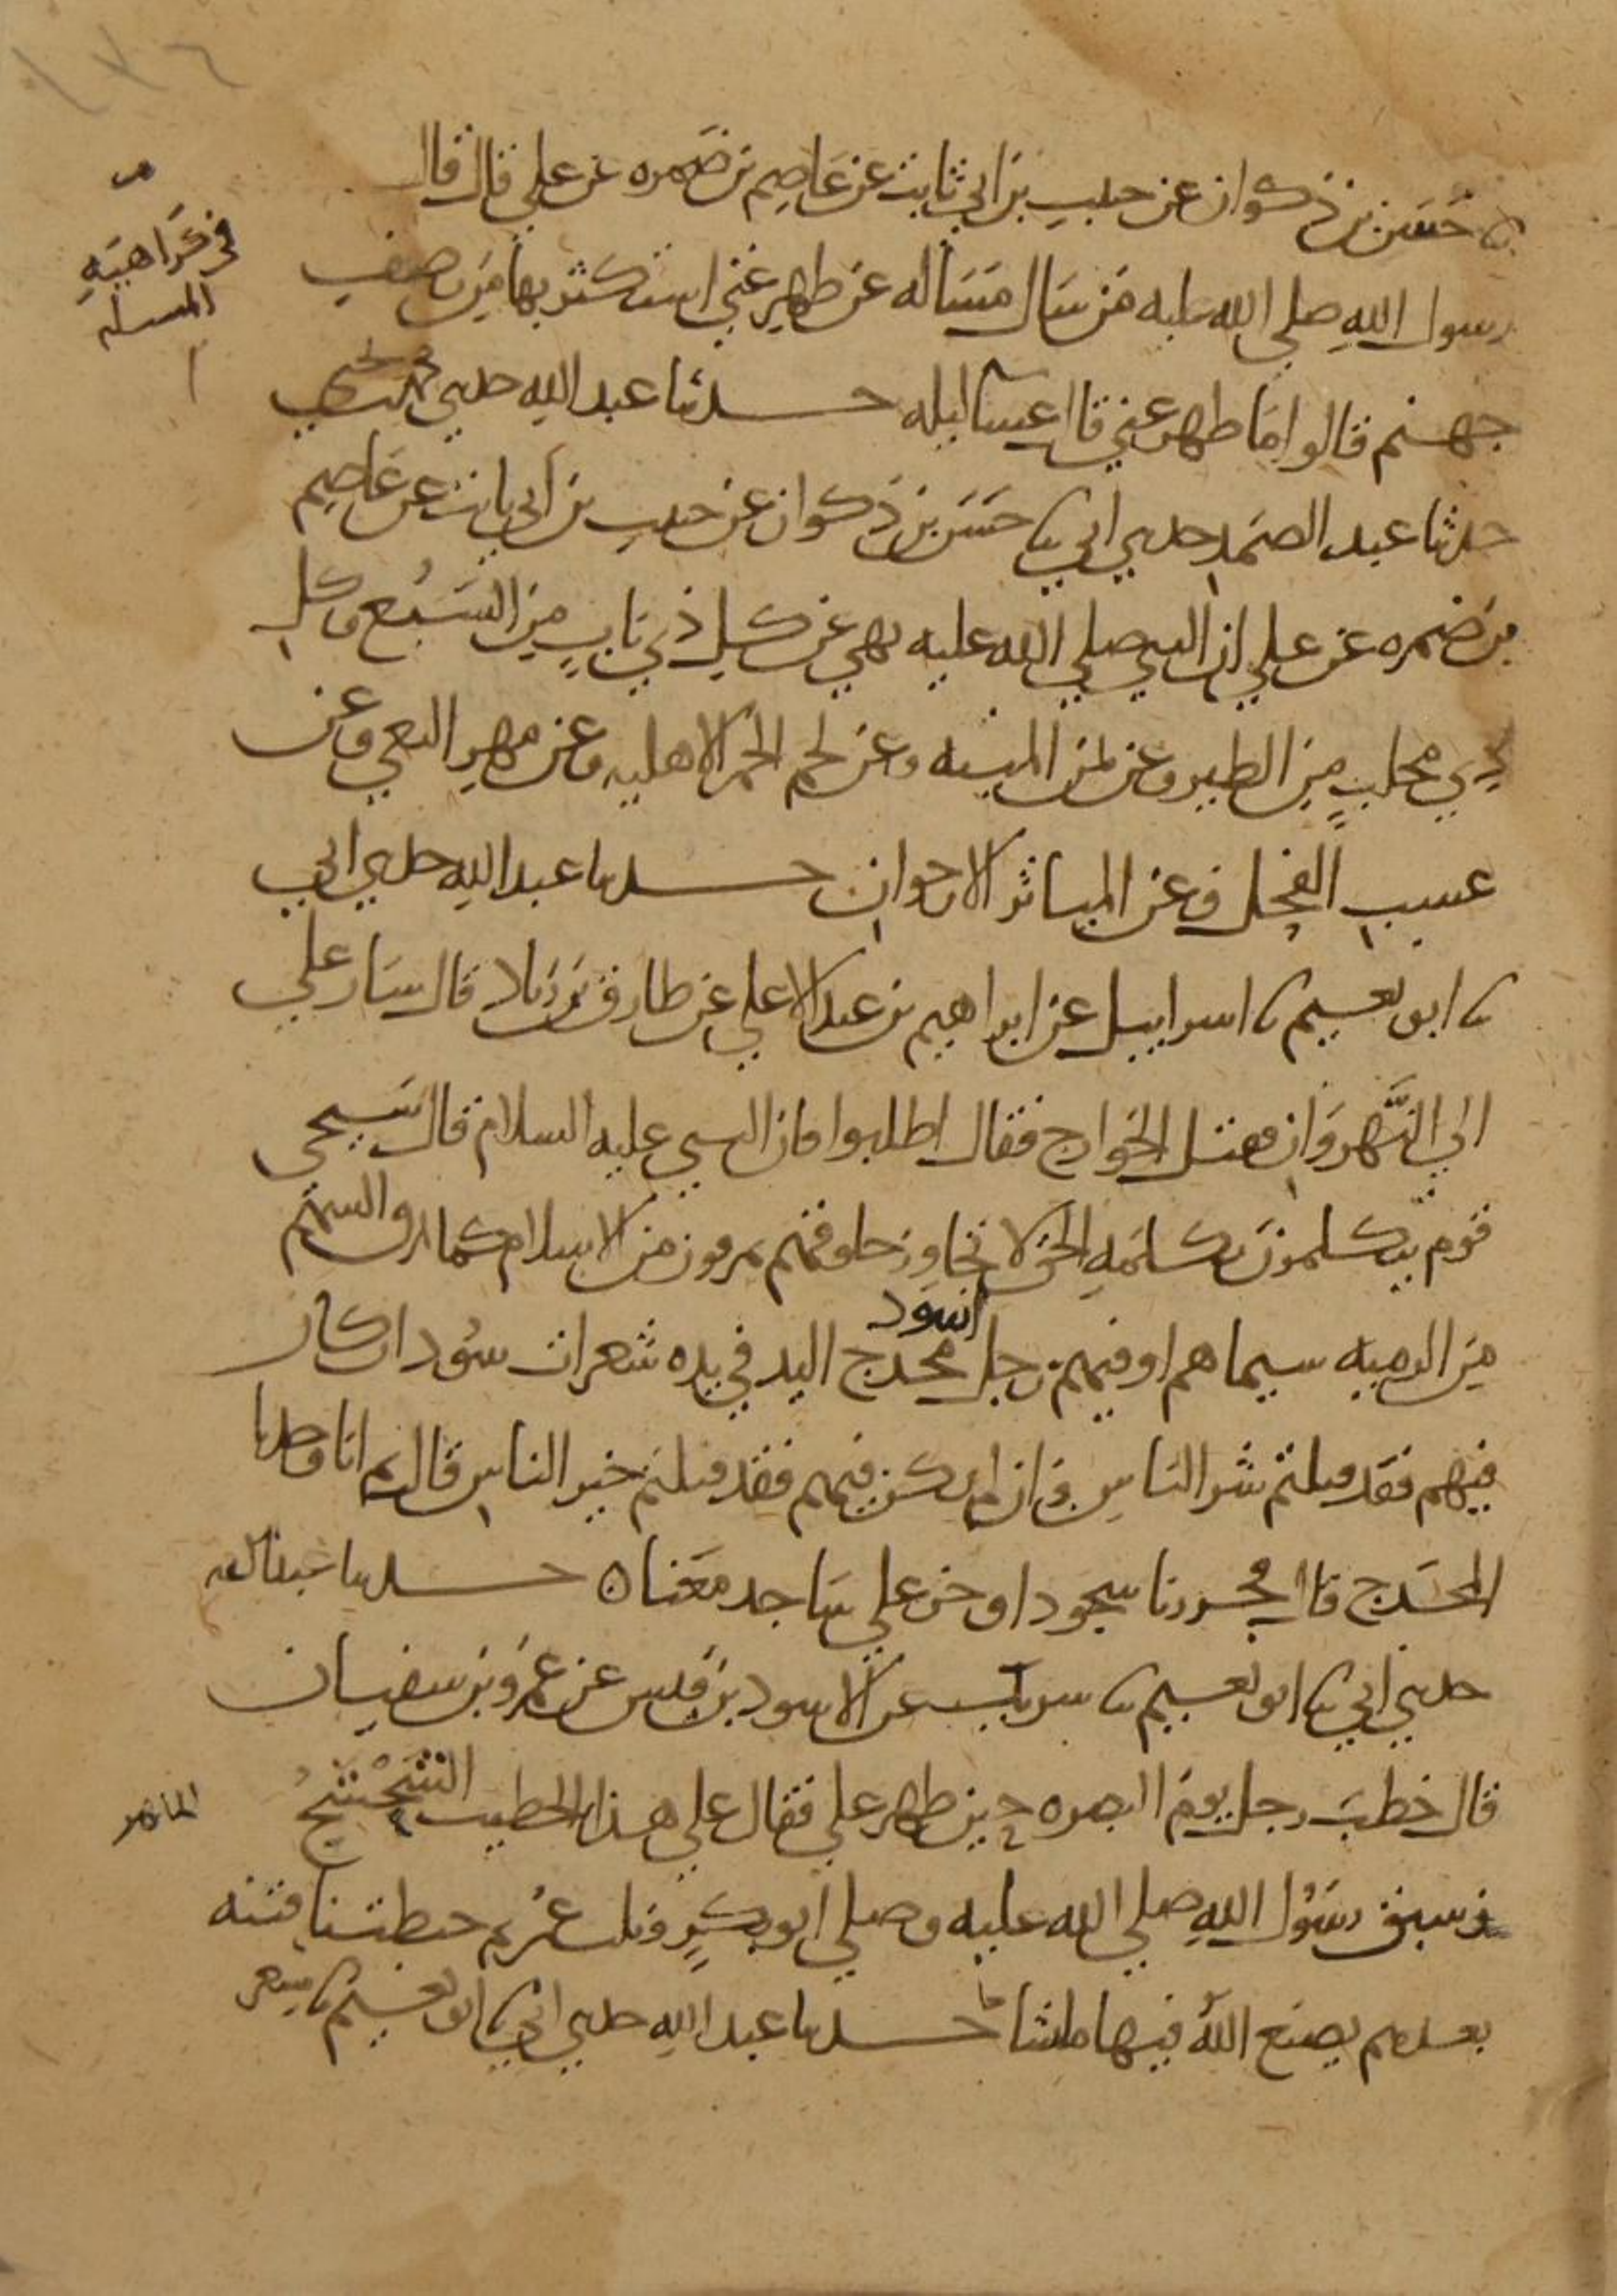 ١٧٦
نا حسن بن ذكوان عن حبيب بن ابي ثابت عن عاصم بن ضمره عن علي قال قال
رسول الله صلي الله عليه من سال مساله عن ظهر غني استكثر بها من رضف
في كراهية
المسله
جهنم قالوا ما ظهر غني قال عشا ليله حدثنا عبد الله حدثني محمد بن يحيي
حدثنا عبد الصمد حدثني ابي نا حسن بن ذكوان عن حبيب بن ابي ثابت عن عاصم
بن ضمره عن علي ان النبي صلي الله عليه نهي عن كل ذي ناب من السبع وكل
ذي مخلب من الطير وعن ثمن الميته وعن لحم الحمر الاهليه وعن مهر البغي وعن
عسب الفحل وعن المياثر الارجوان حدثنا عبد الله حدثني ابي
نا ابو نعيم نا اسراييل عن ابراهيم بن عبد الاعلي عن طارق بن زياد قال سار علي
الي النهروان فقتل الخوارج فقال اطلبوا فان النبي عليه السلام قال سيجي
قوم يتكلمون بكلمه الحق لا تجاوز حلوقهم يمرقون من الاسلام كما يمرق السهم
من الرميه سيماهم او فيهم رجل اسود مخدج اليد في يده شعرات سود ان كان
فيهم فقد قتلتم شر الناس وان لم يكن فيهم فقد قتلتم خير الناس قال ثم انا وجدنا
المخدج قال فخررنا سجودا وخر علي ساجد معنا ه حدثنا عبد الله
حدثني ابي نا ابو نعيم نا شريك عن الاسود بن قيس عن عمرو بن سفيان
قال خطب رجل يوم البصره حين ظهر علي فقال علي هذا الخطيب الشحشح
الماهر
سبق رسول الله صلي الله عليه وصلي ابو بكر وثلث عمر ثم خبطتنا فتنه
بعدهم يصنع الله فيها ما شا حدثنا عبد الله حدثني ابي نا ابو نعيم نا مسعر